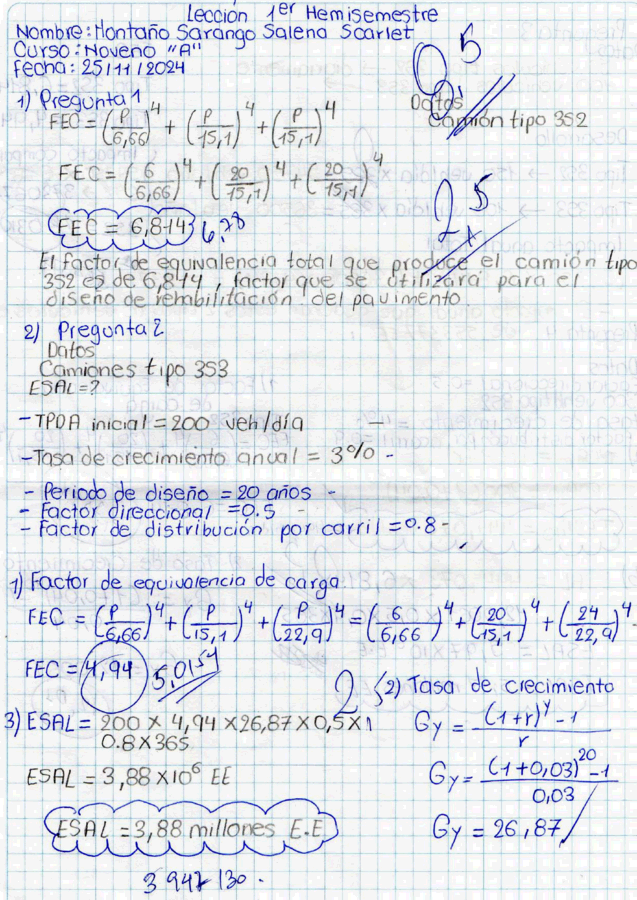 Lección 1er Hemisemestre
Nombre: Montaño Sarango Salena Scarlet
Curso: Noveno "A"
Fecha: 25/11/2024
1) Pregunta 1
FEC = (P/6,66)^4 + (P/15,1)^4 + (P/15,1)^4
Datos
Camión tipo 3S2
FEC = (6/6,66)^4 + (20/15,1)^4 + (20/15,1)^4
FEC = 6,814 6,78
2,5
El factor de equivalencia total que produce el camión tipo
3S2 es de 6,814, factor que se utilizará para el
diseño de rehabilitación del pavimento.
2) Pregunta 2
Datos
Camiones tipo 3S3
ESAL=?
- TPDA inicial = 200 veh/día -
- Tasa de crecimiento anual = 3% -
- Periodo de diseño = 20 años -
- Factor direccional = 0.5 -
- Factor de distribución por carril = 0.8 -
1) Factor de equivalencia de carga.
FEC = (P/6,66)^4 + (P/15,1)^4 + (P/22,9)^4 = (6/6,66)^4 + (20/15,1)^4 + (24/22,9)^4
FEC = 4,94 5,0154
2
2) Tasa de crecimiento
Gy = ((1+r)^y - 1)/r
Gy = ((1+0,03)^20 - 1)/0,03
Gy = 26,87
3) ESAL = 200 x 4,94 x 26,87 x 0,5 x
0.8 x 365
ESAL = 3,88 x 10^6 EE
ESAL = 3,88 millones E.E